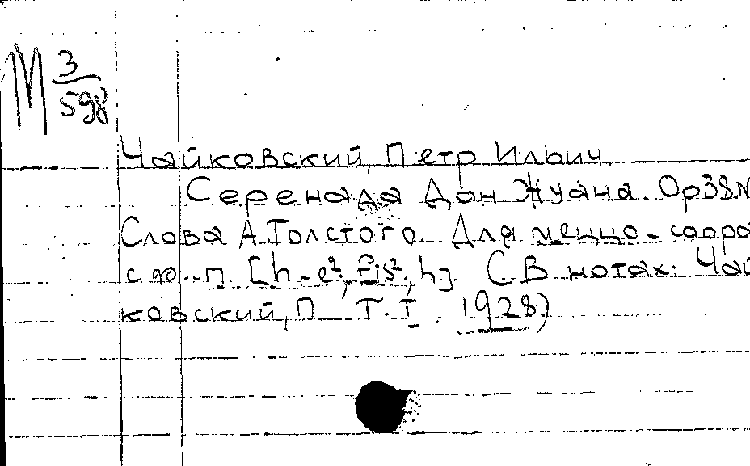 М 3/598
Чайковский, Петр Ильич.
Серенада Дон Жуана. Op38N
Слова А.Толстого. Для меццо-сопра
с ф.-п. [h-e², fis², h]. (В нотах: Чай
ковский, П. Т.I. 1928)